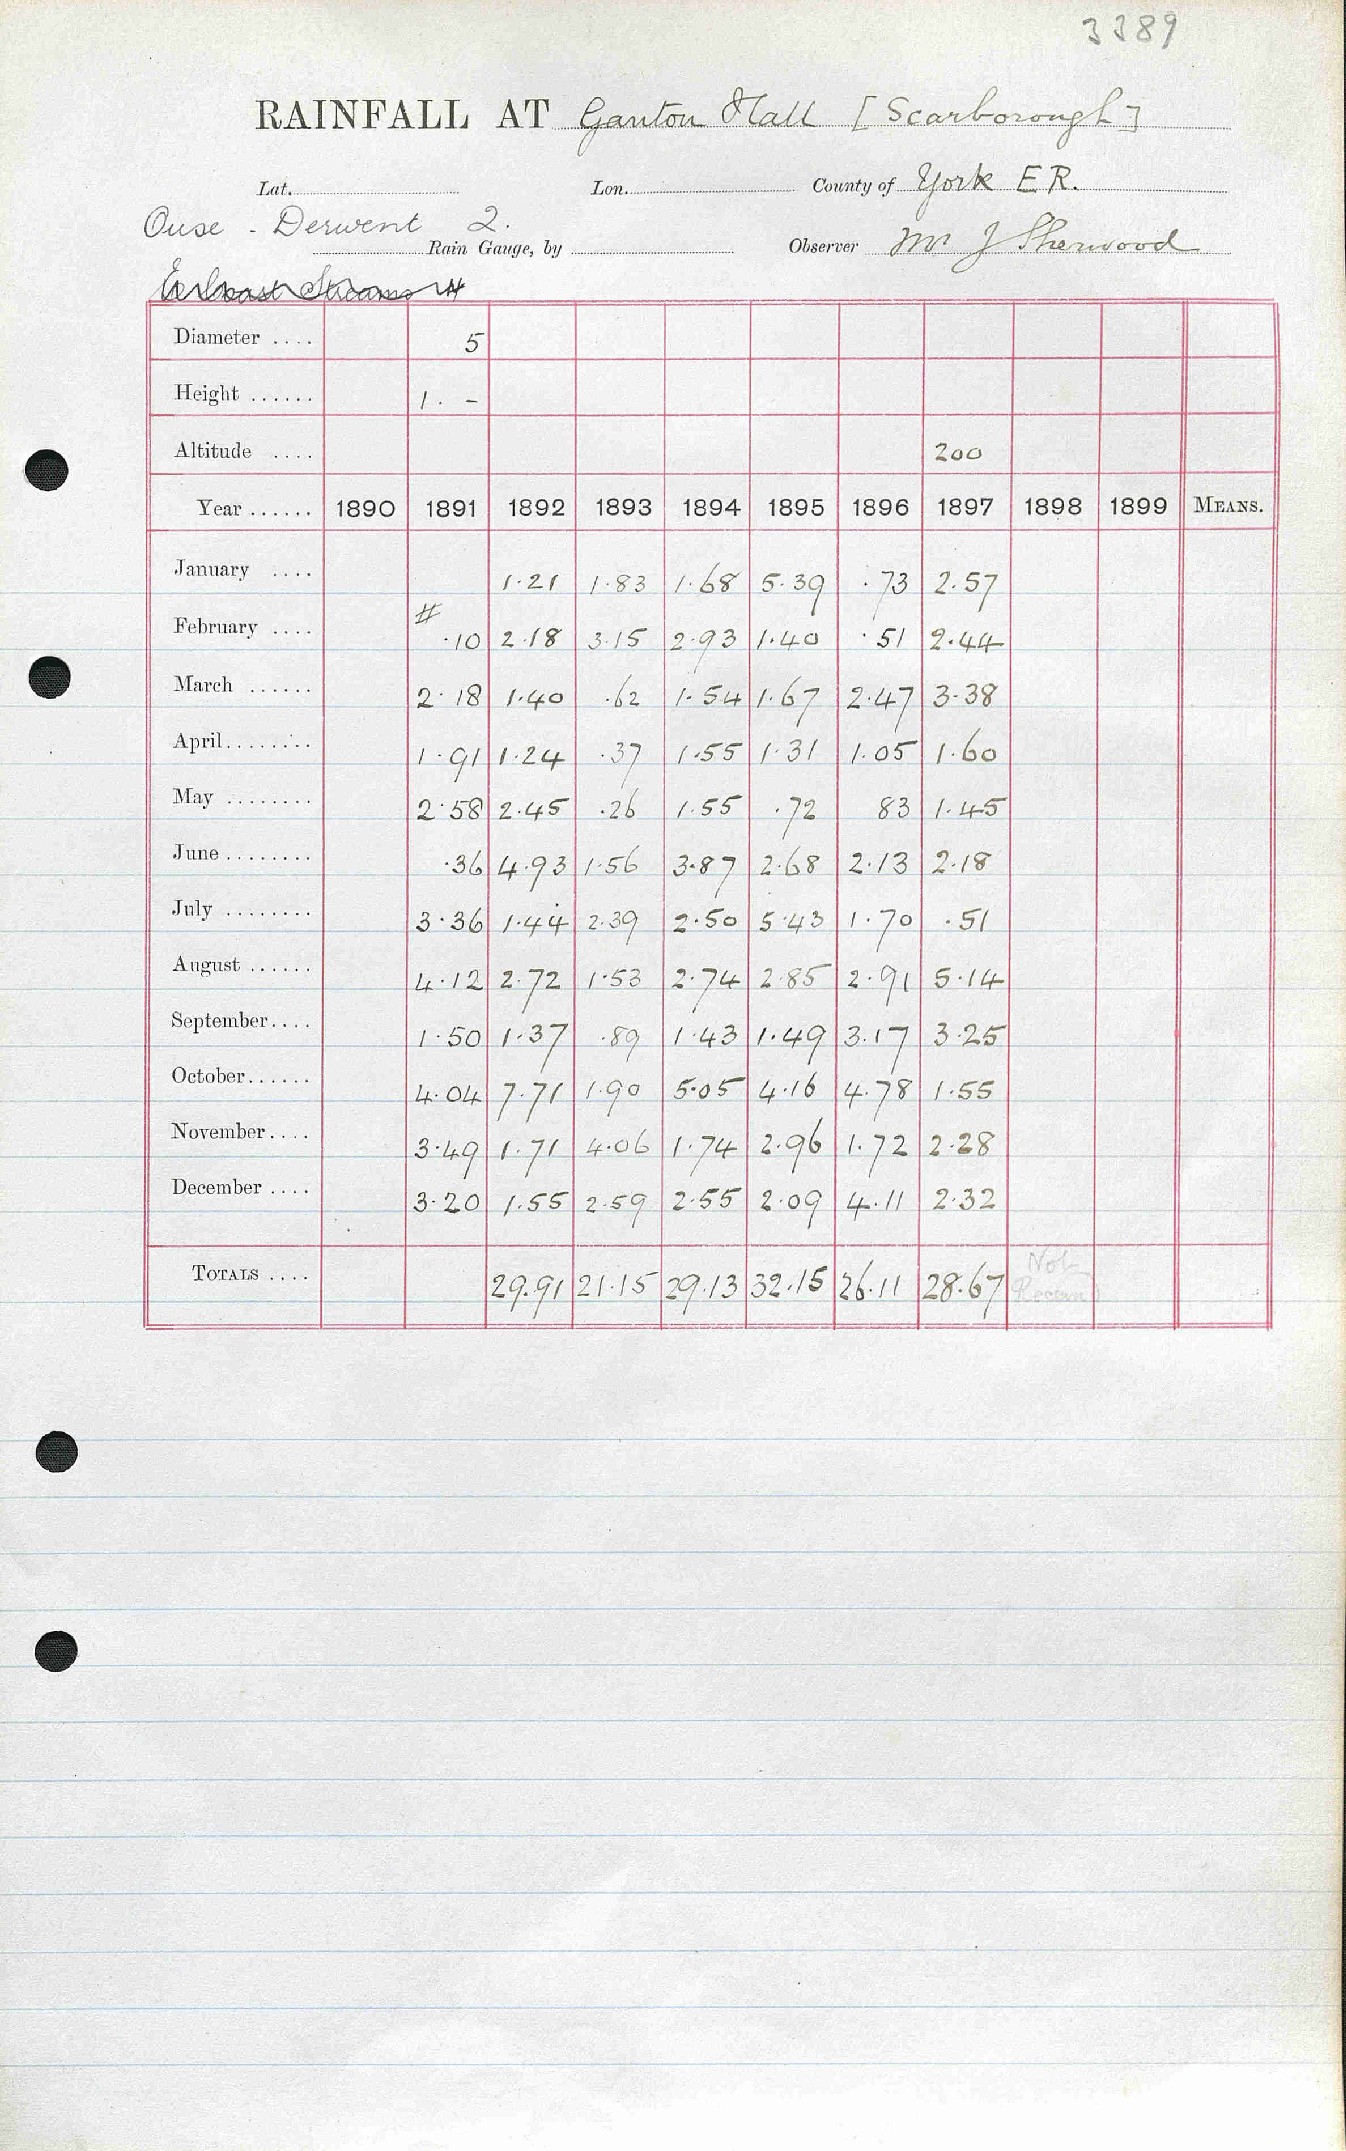 3389
RAINFALL AT Ganton Hall [Scarborough]
Lat. Lon. County of York E R.
Ouse - Derwent 2.
Rain Gauge, by Observer Mr J Sherwood
Diameter .... 5
Height ...... 1. -
Altitude .... 200
Year ...... 1890 1891 1892 1893 1894 1895 1896 1897 1898 1899 MEANS.
January .... 1.21 1.83 1.68 5.39 .73 2.57
February .... # .10 2.18 3.15 2.93 1.40 .51 2.44
March ...... 2.18 1.40 .62 1.54 1.67 2.47 3.38
April........ 1.91 1.24 .37 1.55 1.31 1.05 1.60
May ........ 2.58 2.45 .26 1.55 .72 83 1.45
June........ .36 4.93 1.56 3.87 2.68 2.13 2.18
July ........ 3.36 1.44 2.39 2.50 5.43 1.70 .51
August ...... 4.12 2.72 1.53 2.74 2.85 2.91 5.14
September.... 1.50 1.37 .89 1.43 1.49 3.17 3.25
October...... 4.04 7.71 1.90 5.05 4.16 4.78 1.55
November.... 3.49 1.71 4.06 1.74 2.96 1.72 2.28
December .... 3.20 1.55 2.59 2.55 2.09 4.11 2.32
TOTALS .... 29.91 21.15 29.13 32.15 26.11 28.67